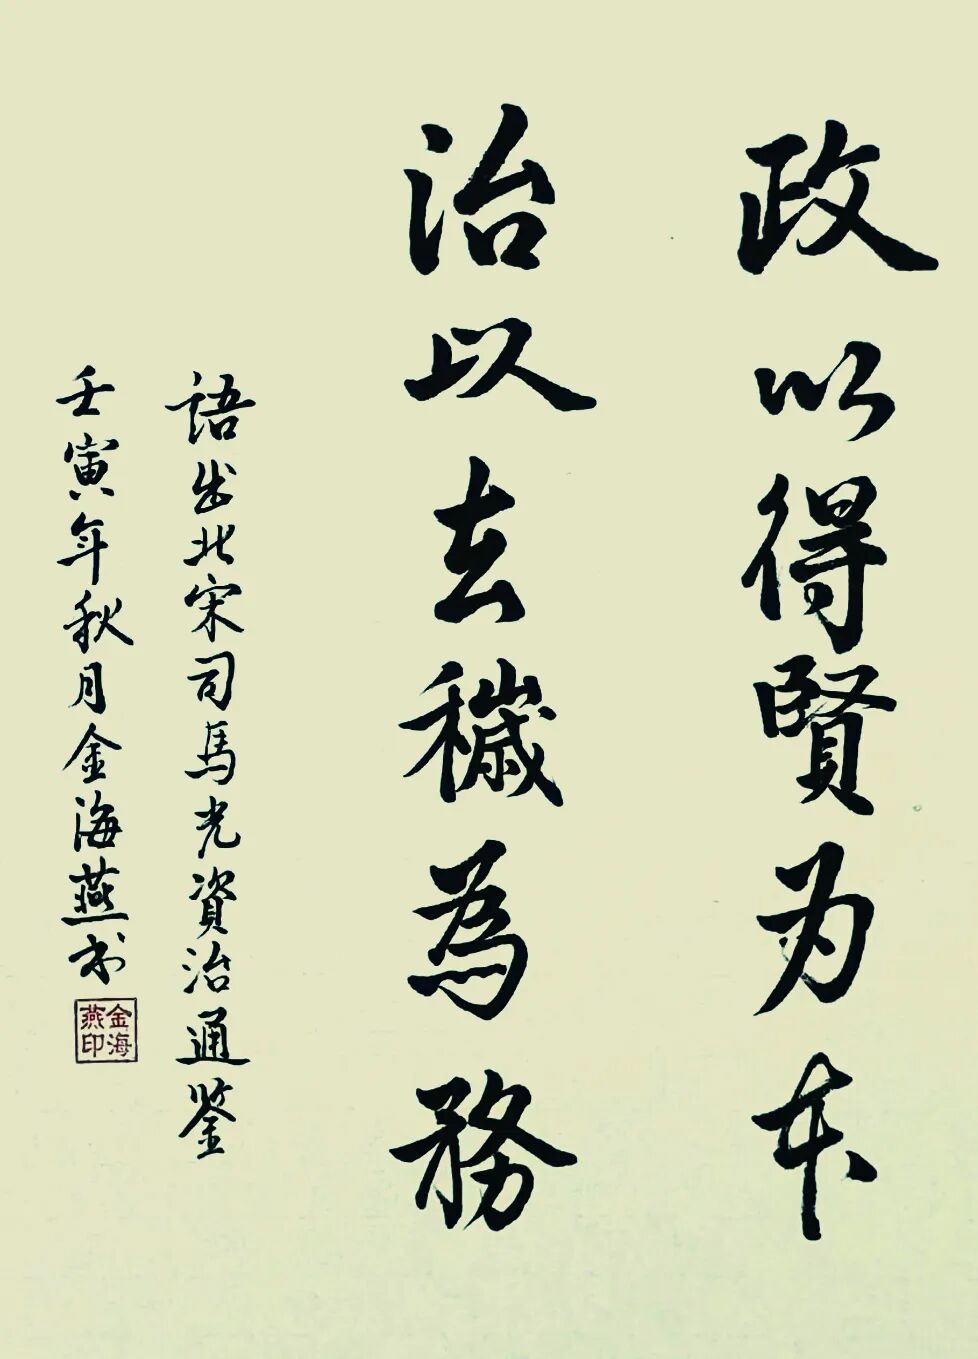 政以得賢为本
治以去穢為務
語出北宋司馬光資治通鉴
壬寅年秋月金海燕书
金海燕印